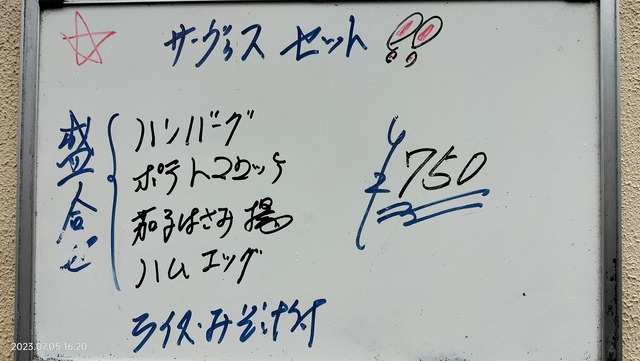 サーヴィス セット
盛合せ
ハンバーグ
ポテトコロッケ
茄子はさみ揚
ハムエッグ
¥750
ライス・みそ汁付
2023.07.05 16:20